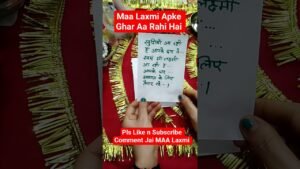 Maa Laxmi Apke
Ghar Aa Rahi Hai
आ रही
है आपके घर
माँ लक्ष्मी
आ रही है
आपके घर
स्वागत के लिए
Pls Like n Subscribe
Comment Jai MAA Laxmi